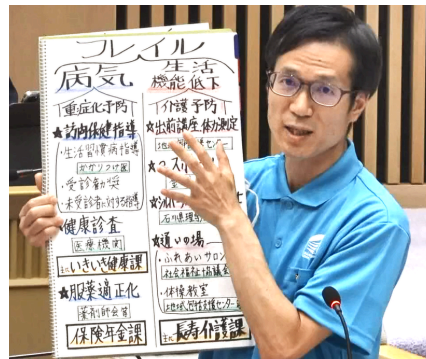 フレイル
病気
生活
機能低下
重症化予防
介護予防
★訪問保健指導
・生活習慣病指導
かかりつけ医
・受診勧奨
・未受診者に対する指導
★健康診査
医療機関
主にいきいき健康課
★服薬適正化
薬剤師会営
保険年金課
★出前講座、体力測定
センター
★通いの場
・ふれあいサロン
社会福祉協議会
・体操教室
地域包括支援センター
主に長寿介護課